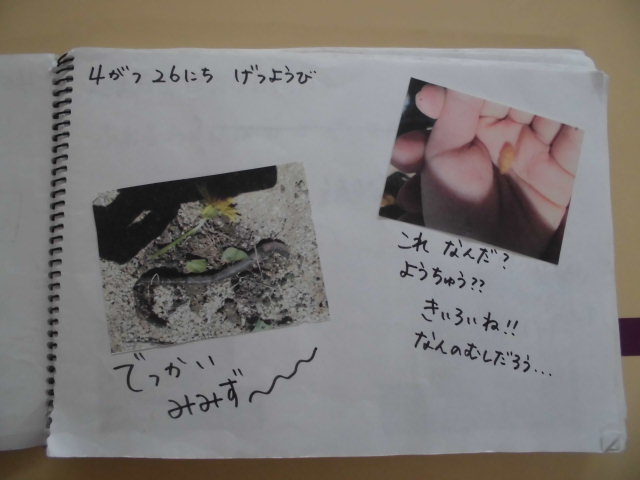 4がつ 26にち げつようび
これ なんだ?
ようちゅう??
きいろいね!!
なんのむしだろう...
でっかい
みみず〜〜